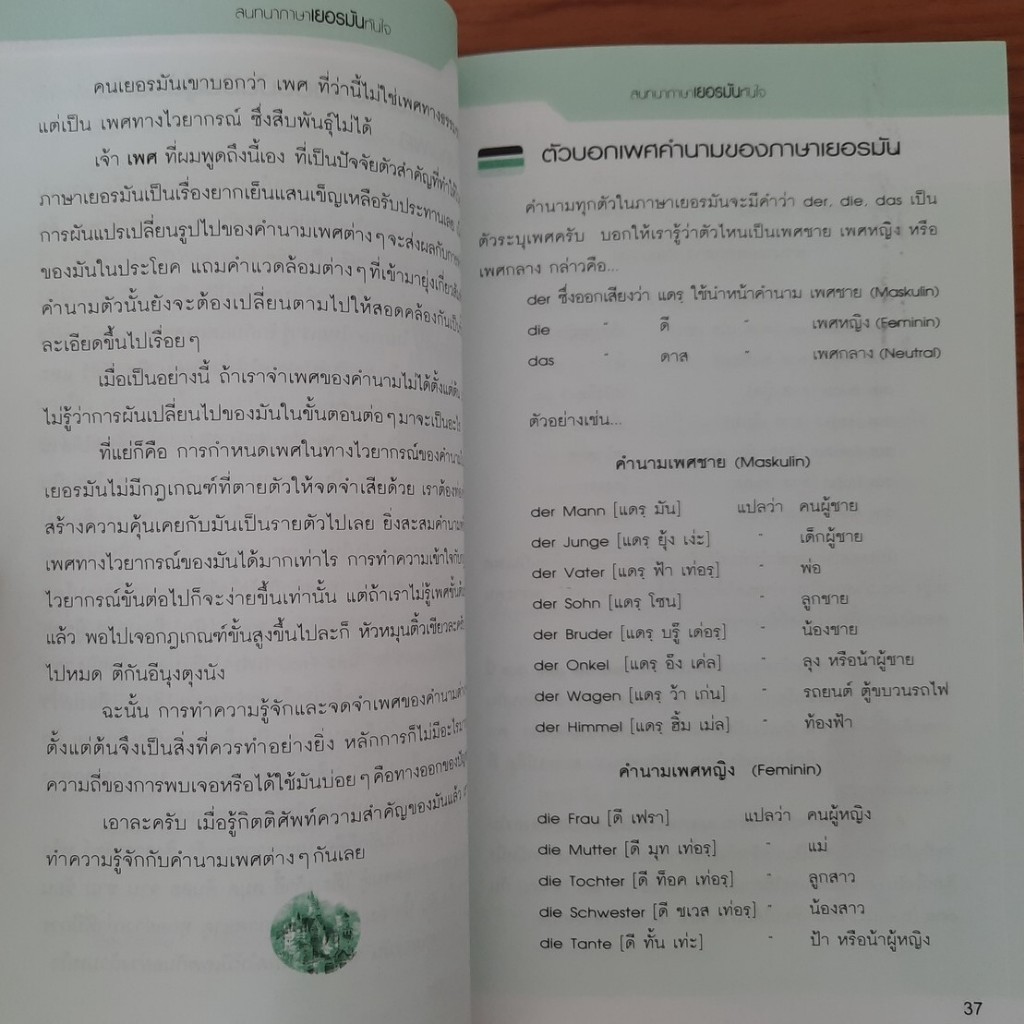 สนทนาภาษาเยอรมันทันใจ
คนเยอรมันเขาบอกว่า เพศ ที่ว่านี้ไม่ใช่เพศทางธรรมชาติ
แต่เป็น เพศทางไวยากรณ์ ซึ่งสืบพันธุ์ไม่ได้
เจ้า เพศ ที่ผมพูดถึงนี้เอง ที่เป็นปัจจัยตัวสำคัญที่ทำให้
ภาษาเยอรมันเป็นเรื่องยากเย็นแสนเข็ญเหลือรับประทานเลย
การผันแปรเปลี่ยนรูปไปของคำนามเพศต่างๆ จะส่งผลกับการ
ของมันในประโยค แถมคำแวดล้อมต่างๆ ที่เข้ามายุ่งเกี่ยว
คำนามตัวนั้นยังจะต้องเปลี่ยนตามไปให้สอดคล้องกัน
ละเอียดขึ้นไปเรื่อยๆ
เมื่อเป็นอย่างนี้ ถ้าเราจำเพศของคำนามไม่ได้ตั้งแต่ต้น
ไม่รู้ว่าการผันเปลี่ยนไปของมันในขั้นตอนต่อๆ มาจะเป็นอะไร
ที่แย่ก็คือ การกำหนดเพศในทางไวยากรณ์ของคำนาม
เยอรมันไม่มีกฎเกณฑ์ที่ตายตัวให้จดจำเสียด้วย เราต้อง
สร้างความคุ้นเคยกับมันเป็นรายตัวไปเลย ยิ่งสะสมคำนาม
เพศทางไวยากรณ์ของมันได้มากเท่าไร การทำความเข้าใจกับ
ไวยากรณ์ขั้นต่อไปก็จะง่ายขึ้นเท่านั้น แต่ถ้าเราไม่รู้เพศ
แล้ว พอไปเจอกฎเกณฑ์ขั้นสูงขึ้นไปละก็ หัวหมุนติ้วเขียว
ไปหมด ตีกันอีนุงตุงนัง
ฉะนั้น การทำความรู้จักและจดจำเพศของคำนาม
ตั้งแต่ต้นจึงเป็นสิ่งที่ควรทำอย่างยิ่ง หลักการก็ไม่มีอะไร
ความถี่ของการพบเจอหรือได้ใช้มันบ่อยๆ คือทางออกของ
เอาละครับ เมื่อรู้กิตติศัพท์ความสำคัญของมันแล้ว
ทำความรู้จักกับคำนามเพศต่างๆ กันเลย
สนทนาภาษาเยอรมันทันใจ
ตัวบอกเพศคำนามของภาษาเยอรมัน
คำนามทุกตัวในภาษาเยอรมันจะมีคำว่า der, die, das เป็น
ตัวระบุเพศครับ บอกให้เรารู้ว่าตัวไหนเป็นเพศชาย เพศหญิง หรือ
เพศกลาง กล่าวคือ...
der ซึ่งออกเสียงว่า แดรฺ ใช้นำหน้าคำนาม เพศชาย (Maskulin)
die " ดี " เพศหญิง (Feminin)
das " ดาส " เพศกลาง (Neutral)
ตัวอย่างเช่น...
คำนามเพศชาย (Maskulin)
der Mann [แดรฺ มัน] แปลว่า คนผู้ชาย
der Junge [แดรฺ ยุ้ง เง่ะ] " เด็กผู้ชาย
der Vater [แดรฺ ฟ้า เท่อรฺ] " พ่อ
der Sohn [แดรฺ โซน] " ลูกชาย
der Bruder [แดรฺ บรู๊ เด่อรฺ] " น้องชาย
der Onkel [แดรฺ อ๊ง เค่ล] " ลุง หรือน้าผู้ชาย
der Wagen [แดรฺ ว้า เก่น] " รถยนต์ ตู้ขบวนรถไฟ
der Himmel [แดรฺ ฮิ้ม เม่ล] " ท้องฟ้า
คำนามเพศหญิง (Feminin)
die Frau [ดี เฟรา] แปลว่า คนผู้หญิง
die Mutter [ดี มุท เท่อรฺ] " แม่
die Tochter [ดี ท็อค เท่อรฺ] " ลูกสาว
die Schwester [ดี ชเวส เท่อรฺ] " น้องสาว
die Tante [ดี ทั้น เท่ะ] " ป้า หรือน้าผู้หญิง
37